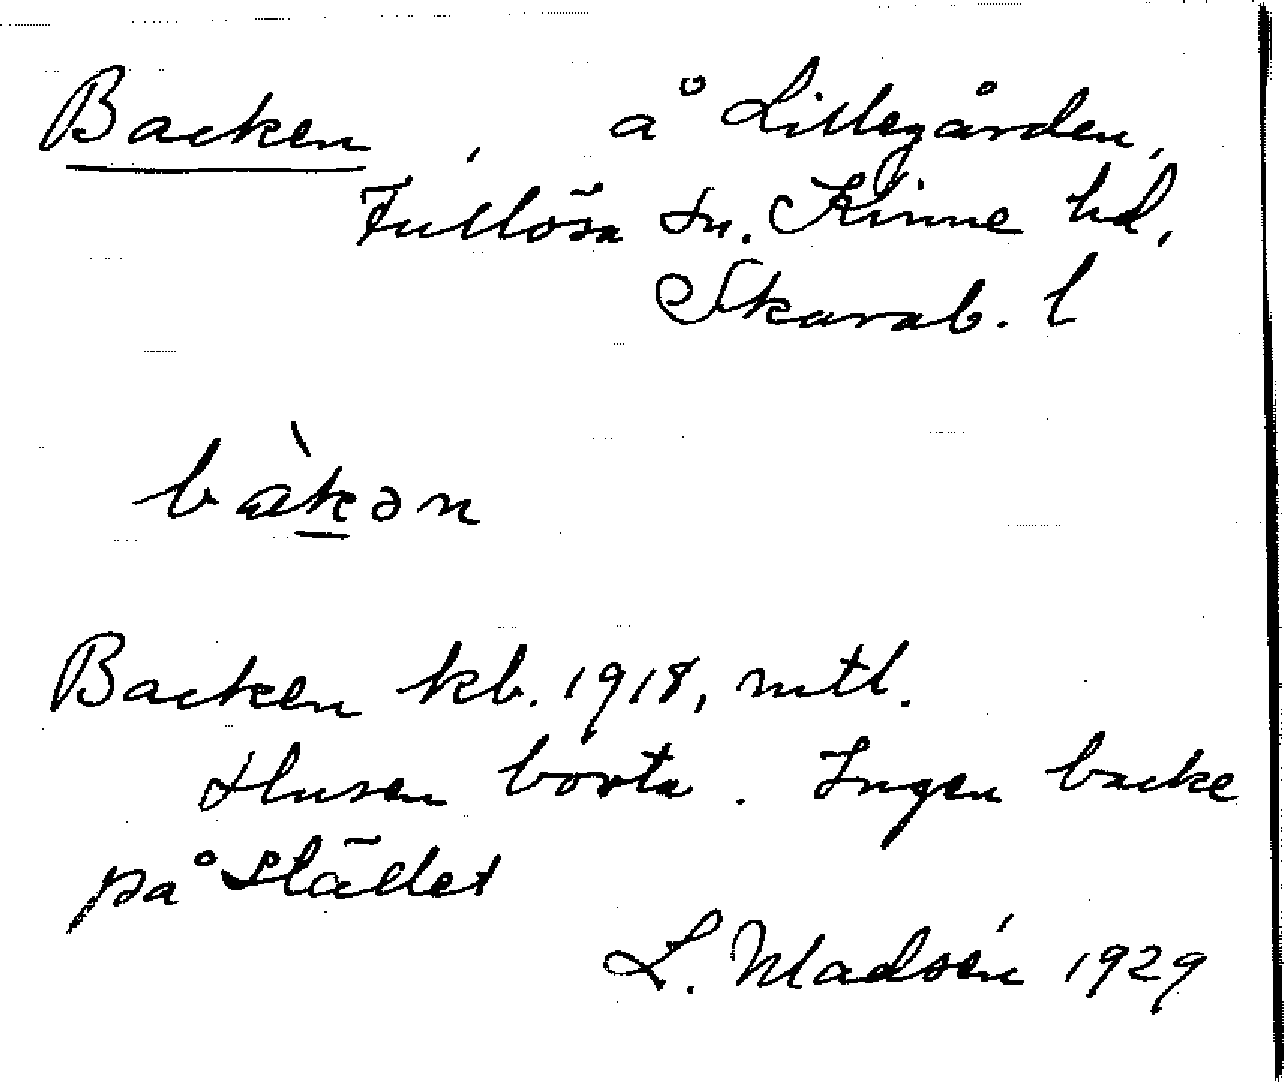 Backen, å Lillegården,
Fullösa sn. Kinne hd,
Skarab. l
bàkən
Backen kb. 1918, mtl.
Husen borta. Ingen backe
på stället
L. Madsén 1929